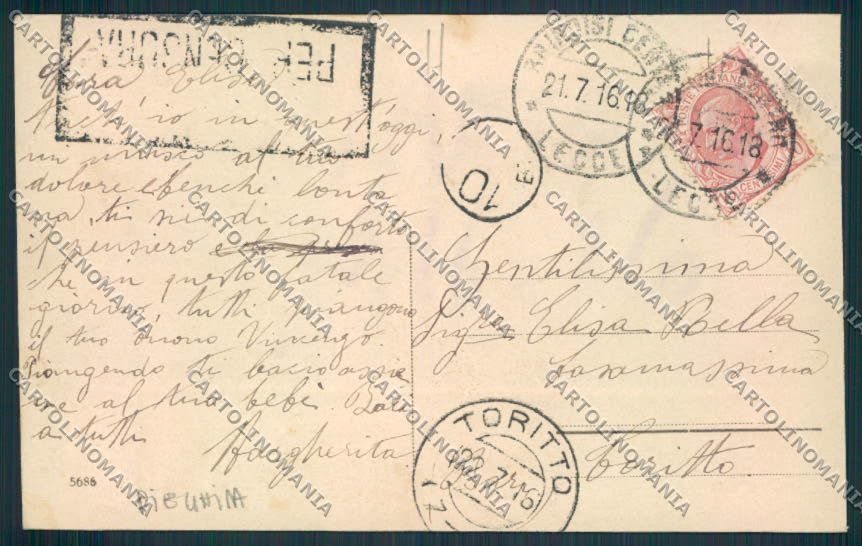 PER CENSURA
Cara Elisa
Anch'io in quest'oggi,
un unisco al tuo
dolore e benchè lonta
na, ti sia di conforto
il pensiero
che in questo fatale
giorno, tutti piangono
il tuo buono Vincenzo.
Piangendo ti bacio assie
me al tuo bebè. Baci
a tutti
Margherita
5686
BRINDISI CENTRO
21.7.16.18
LECCE
7.16.18
LECCE
POSTE ITALIANE
CENTESIMI
10
Gentilissima
Sig.ra Elisa Bella
Toritto
TORITTO
22.7.16
CARTOLINOMANIA